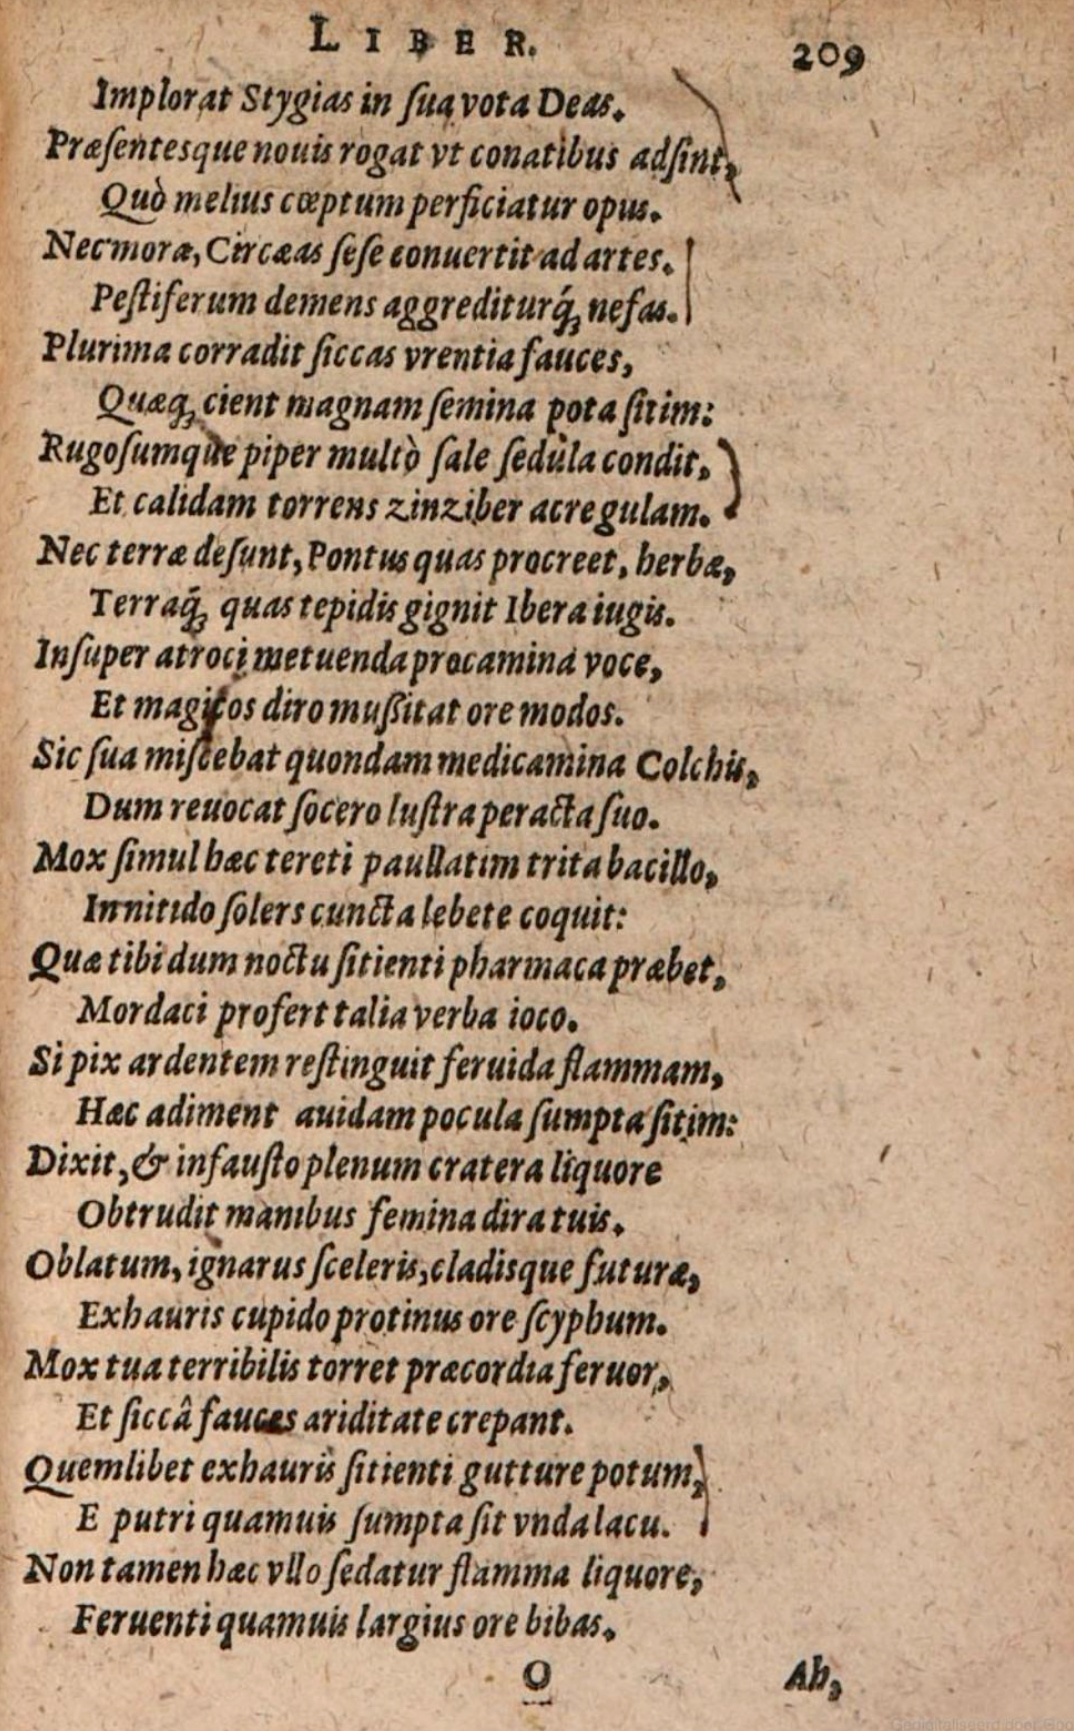 LIBER. 209
Implorat Stygias in ſua vota Deas.
Præſentesque nouis rogat vt conatibus adſint,
Quò melius cœptum perficiatur opus.
Nec mora, Circæas ſeſe conuertit ad artes.
Peſtiferum demens aggrediturq́; nefas.
Plurima corradit ſiccas vrentia fauces,
Quæq; cient magnam ſemina pota ſitim:
Rugoſumque piper multò ſale ſedula condit,
Et calidam torrens zinziber acre gulam.
Nec terræ deſunt, Pontus quas procreet, herbæ,
Terraq́; quas tepidis gignit Ibera iugis.
Inſuper atroci metuenda precamina voce,
Et magicos diro muſsitat ore modos.
Sic ſua miſcebat quondam medicamina Colchis,
Dum reuocat ſocero luſtra peracta ſuo.
Mox ſimul hæc tereti paullatim trita bacillo,
In nitido ſolers cuncta lebete coquit:
Quæ tibi dum noctu ſitienti pharmaca præbet,
Mordaci profert talia verba ioco.
Si pix ardentem reſtinguit feruida flammam,
Hæc adiment auidam pocula ſumpta ſitim:
Dixit, & infauſto plenum cratera liquore
Obtrudit manibus femina dira tuis.
Oblatum, ignarus ſceleris, cladisque futuræ,
Exhauris cupido protinus ore ſcyphum.
Mox tua terribilis torret præcordia feruor,
Et ſiccâ fauces ariditate crepant.
Quemlibet exhauris ſitienti gutture potum,
E putri quamuis ſumpta ſit vnda lacu.
Non tamen hæc vllo ſedatur flamma liquore,
Feruenti quamuis largius ore bibas.
O Ah,